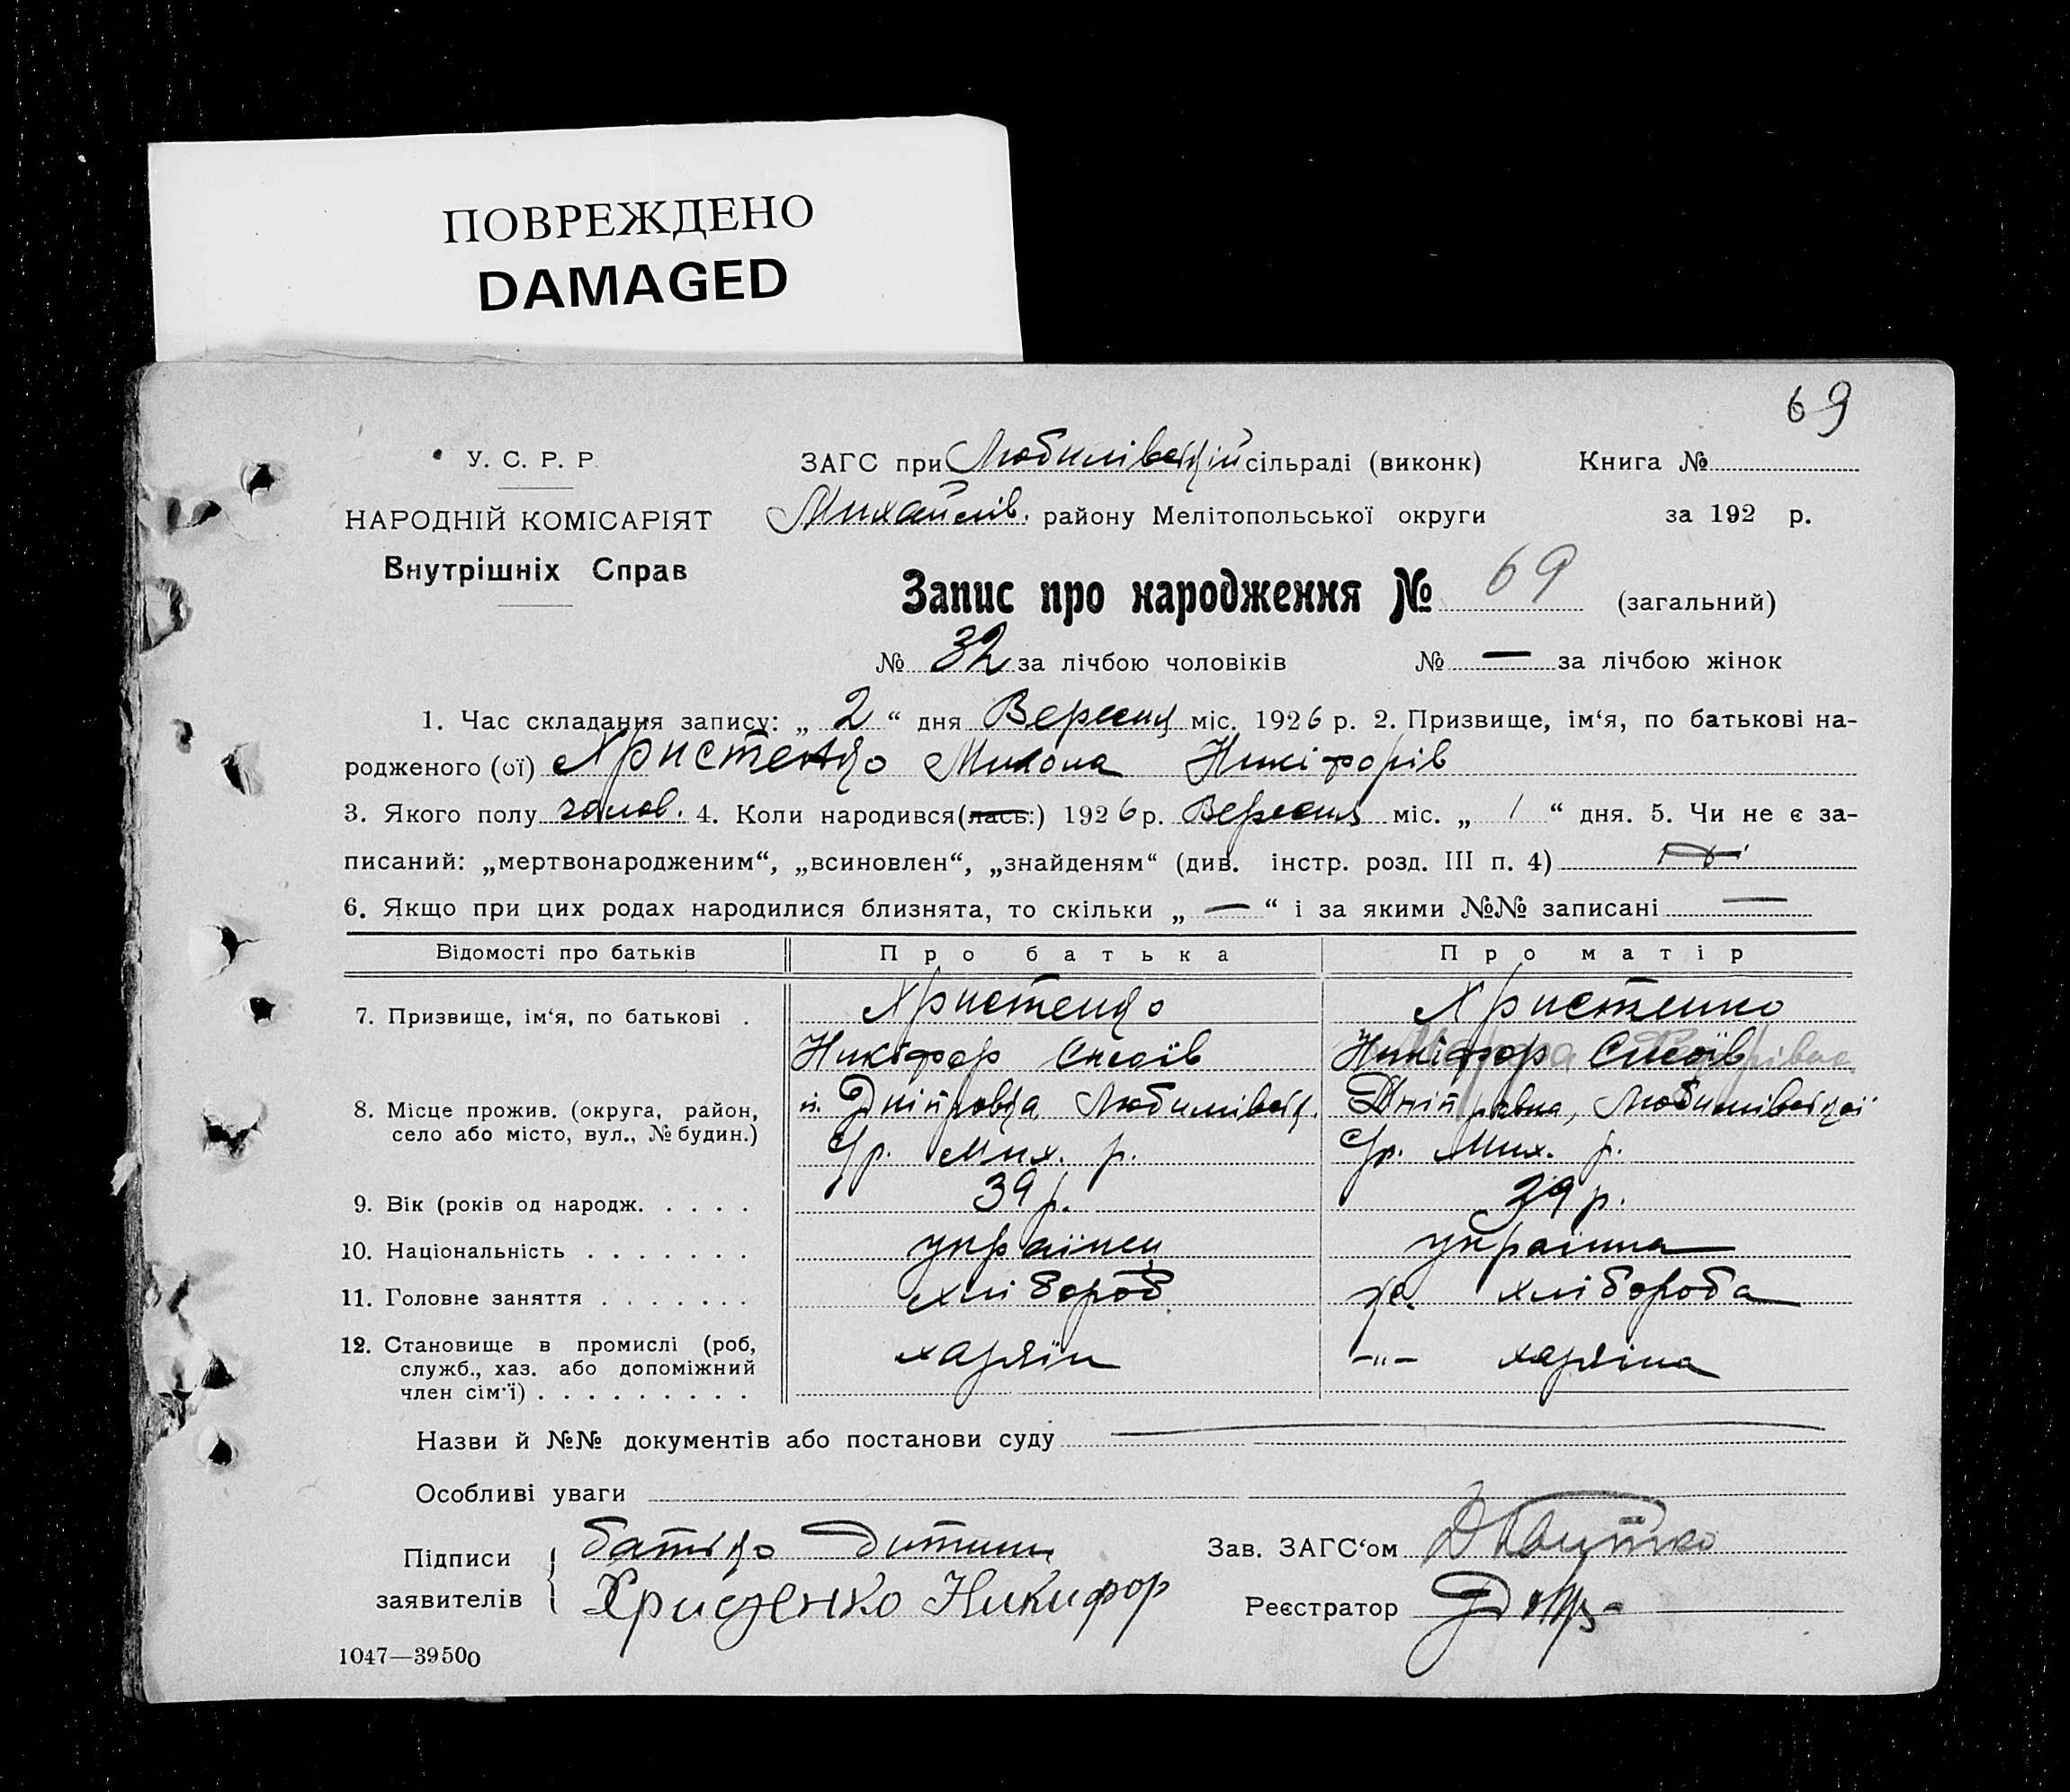 ПОВРЕЖДЕНО
DAMAGED
69
У. С. Р. Р.
НАРОДНІЙ КОМІСАРІЯТ
Внутрішніх Справ
ЗАГС при Любимівській сільраді (виконк)
Михайлів. району Мелітопольської округи
Книга №
за 192 р.
Запис про народження № 69 (загальний)
№ 32 за лічбою чоловіків № — за лічбою жінок
1. Час складання запису: „ 2 “ дня Вересня міс. 1926 р. 2. Призвище, ім‘я, по батькові на-
родженого (ої) Христенко Микола Никіфорів
3. Якого полу чолов. 4. Коли народився (лась:) 1926 р. Вересня міс. „ 1 “ дня. 5. Чи не є за-
писаний: „мертвонародженим“, „всиновлен“, „знайденям“ (див. інстр. розд. III п. 4)
6. Якщо при цих родах народилися близнята, то скільки „ — “ і за якими №№ записані —
Відомості про батьків Про батька Про матір
7. Призвище, ім‘я, по батькові . Христенко Христенко
Никіфор Никіфор
8. Місце прожив. (округа, район, п. Дніпровка Любимівськ. Дніпровка, Любимівської
село або місто, вул., № будин.) с/р. Мих. р. с/р. Мих. р.
9. Вік (років од народж. . . . . 39 р. 39 р.
10. Національність . . . . . . . українец українка
11. Головне заняття . . . . . . . хлібороб хлібороба
12. Становище в промислі (роб,
служб., хаз. або допоміжний хазяїн -"- хазяїна
член сім‘ї) . . . . . . . . .
Назви й №№ документів або постанови суду
Особливі уваги
Підписи заявителів
батько дитини
Христенко Никифор
Зав. ЗАГС‘ом
Реєстратор
1047—39500